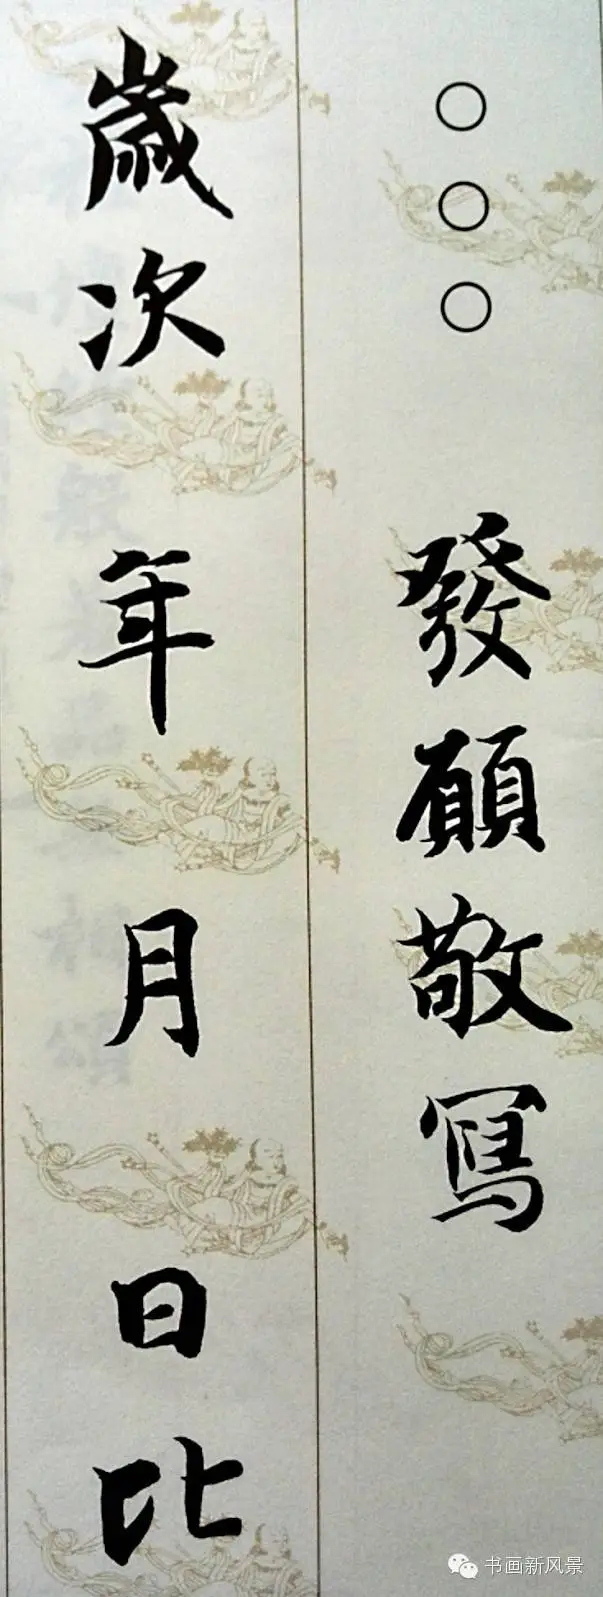 ○○○ 發願敬寫
歲次 年 月 日比
书画新风景